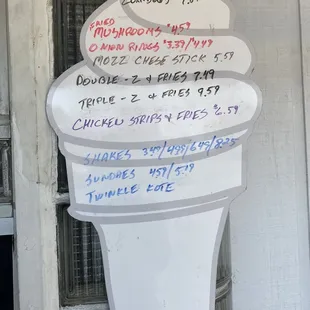 FRIED
MUSHROOMS $4.59
ONION RINGS $3.39/4.49
MOZZ CHEESE STICK 5.59
DOUBLE - Z & FRIES 7.49
TRIPLE - Z & FRIES 9.59
CHICKEN STRIPS & FRIES $6.59
SHAKES 3.49/4.99/6.49/8.25
SUNDAES 4.59/5.19
TWINKLE KOTE